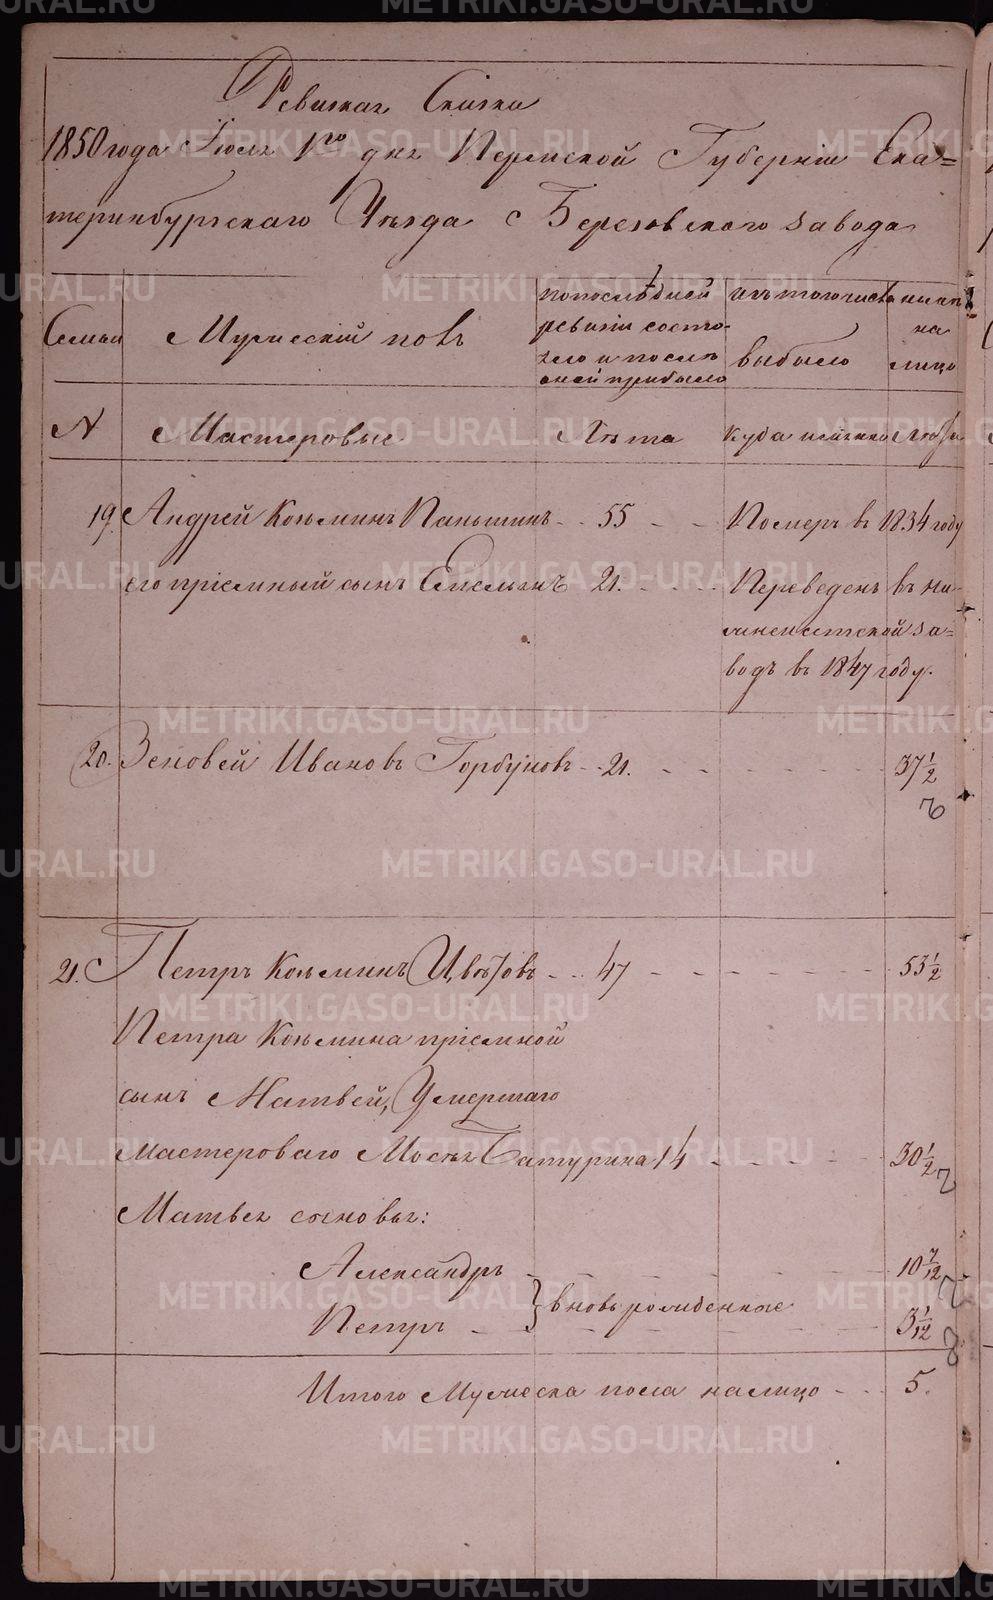 Ревизская Сказка
1850 года Іюля 1го дня Пермской Губерніи Ека=
теринбургскаго Уѣзда Березовскаго завода
Семьи
Мужескій полъ
по послѣдней
ревизіи состо-
яло и послѣ
оней прибыло
изъ того числа
выбыло
ныне
на
лицо
N Мастеровые Лѣта Куда именно Лѣта
19. Андрей Козьминъ Паньшинъ 55 Померъ в 1834 году
его пріемный сынъ Емельянъ 21. Переведенъ въ Ни-
жнеисетской за=
водъ въ 1847 году.
20. Зеновей Ивановъ Горбуновъ 21. 37 1/2
21. Петръ Козьминъ Цвѣтовъ 47 53 1/2
Петра Козьмина пріемной
сынъ Матвей, Умершаго
мастероваго Мосея Батурина 14 30 1/2
Матвея сыновья:
Александръ 10 7/12
вновь рожденные
Петръ 3 1/12
Итого Мужеска пола на лицо 5.
METRIKI.GASO-URAL.RU